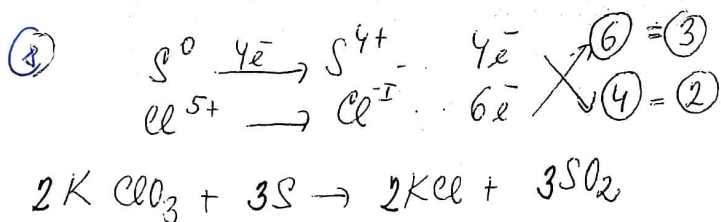 8
S⁰ 4ē→ S⁴⁺ .. 4ē 6 = 3
Cl⁵⁺ → Cl⁻ᴵ .. 6ē 4 = 2
2KClO₃ + 3S → 2KCl + 3SO₂